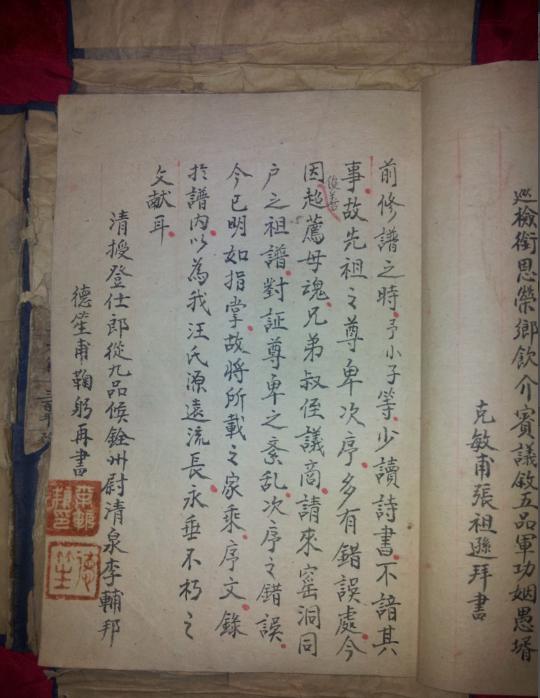 巡檢銜恩榮鄉飲介賓議敘五品軍功姻愚壻
克敏甫張祖遜拜書
前修譜之時予小子等少讀詩書不諳其
事故先祖之尊卑次序多有錯誤處今
因超薦母魂兄弟叔侄議商請來窑洞同
户之祖譜對証尊卑之紊乱次序之錯誤
今已明如指掌故將所載之家乘序文錄
於譜内以為我汪氏源遠流長永垂不朽之
文献耳
清授登仕郎從九品候銓州尉清泉李輔邦
德笙甫鞠躬再書